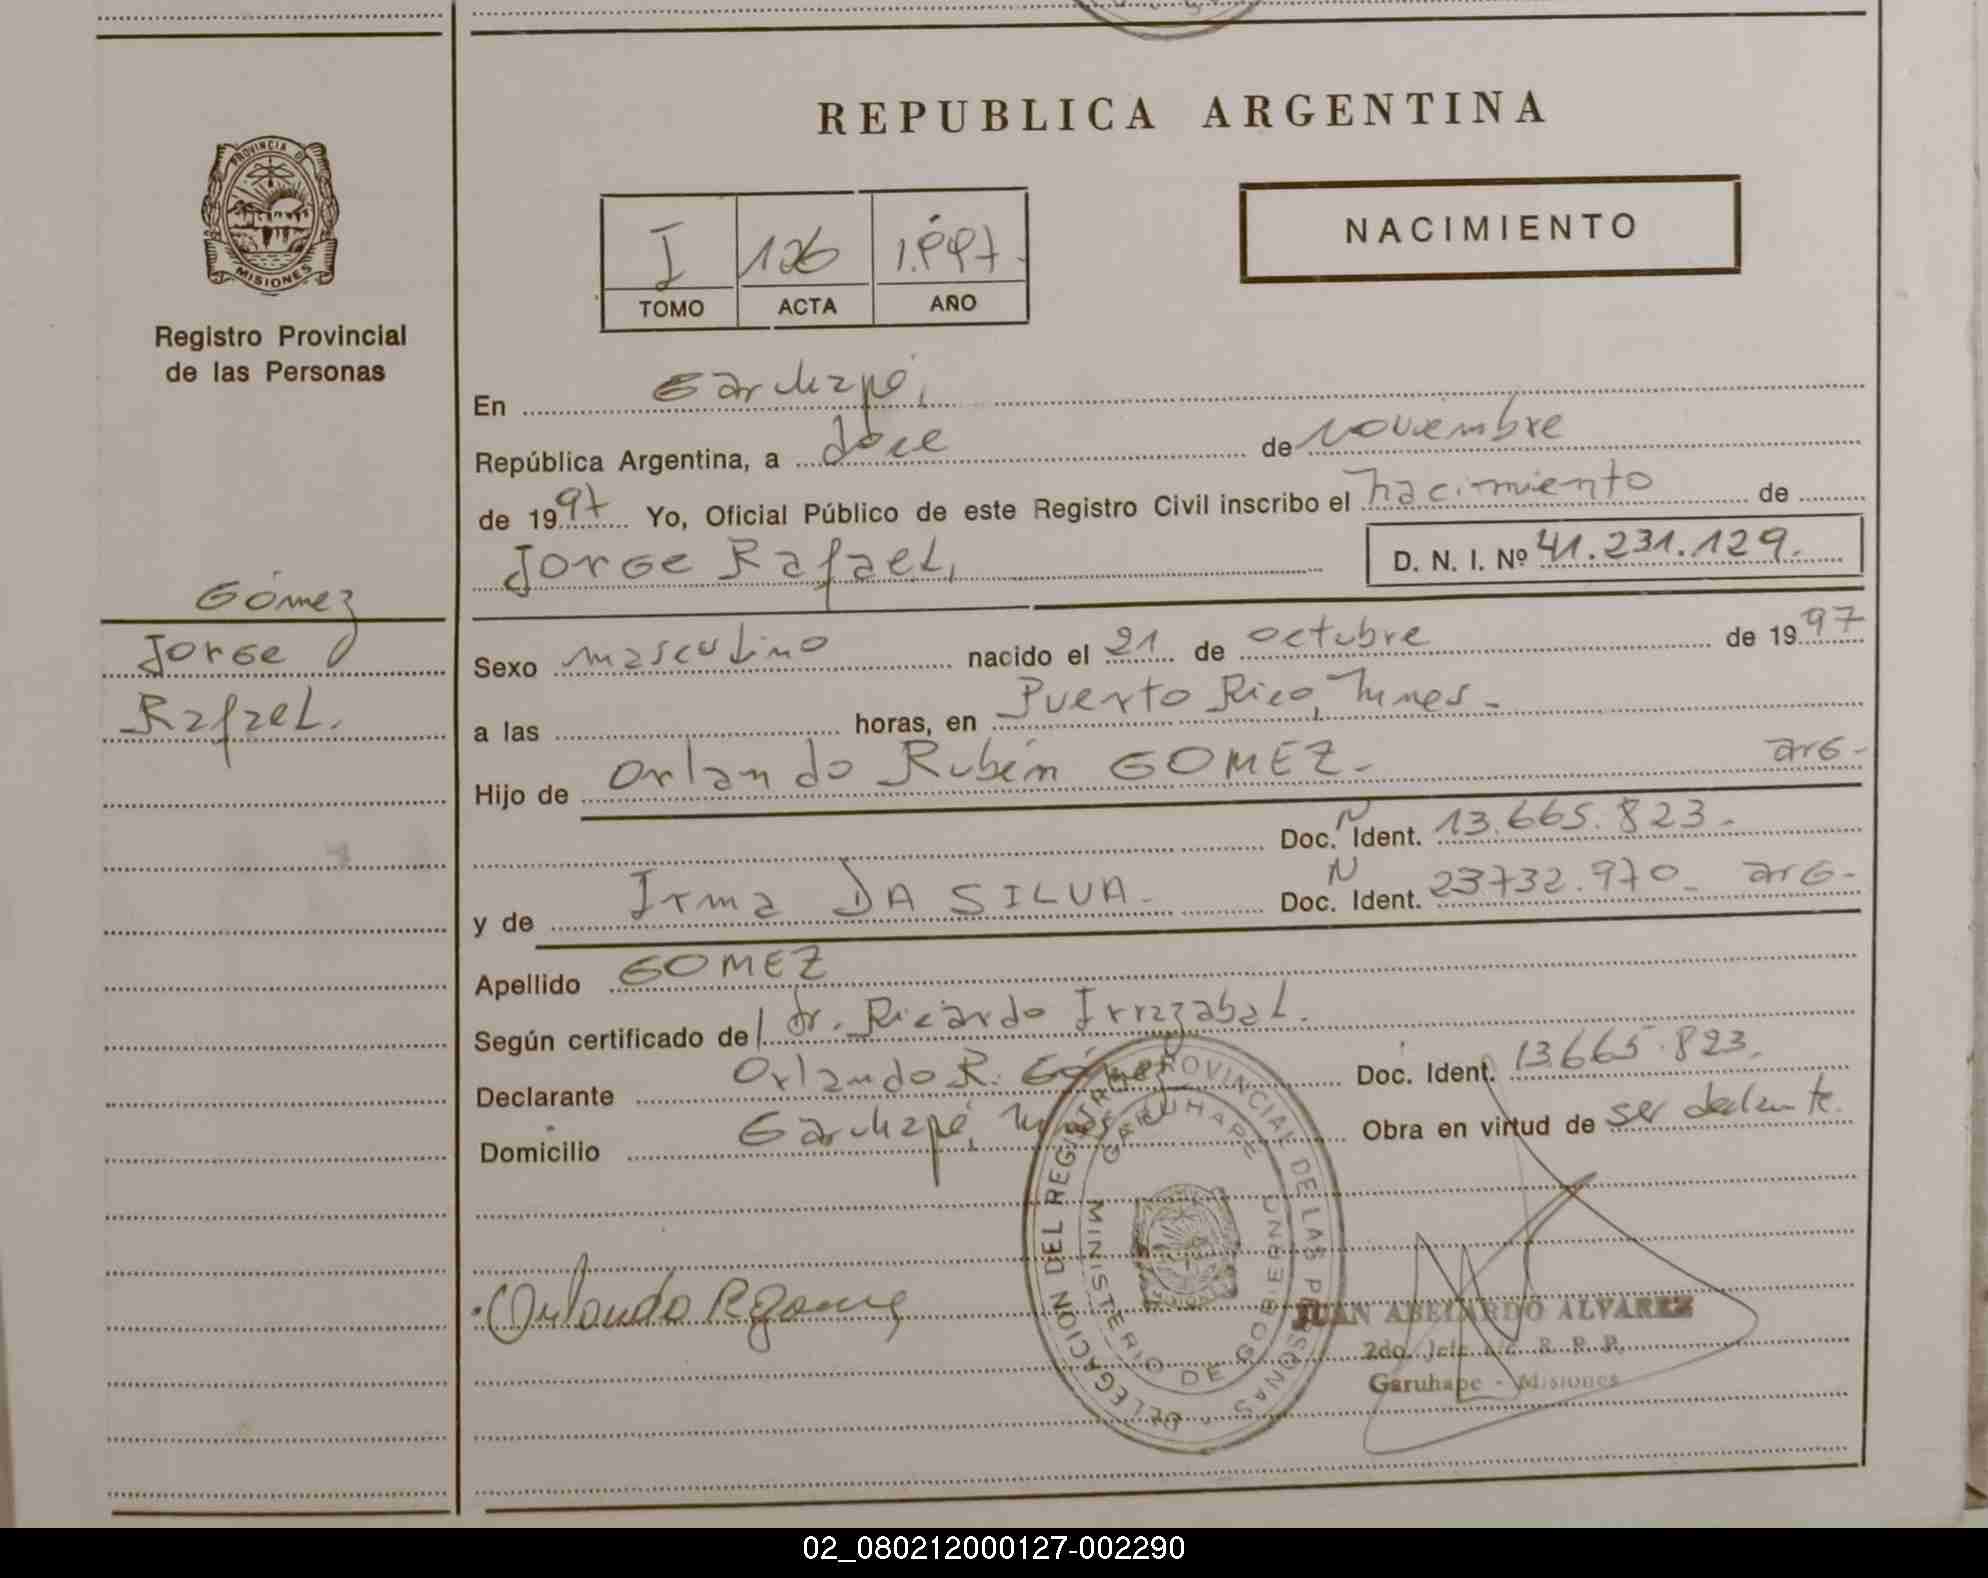 REPUBLICA ARGENTINA
PROVINCIA DE
MISIONES
Registro Provincial
de las Personas
I 126 1.997.-
TOMO ACTA AÑO
NACIMIENTO
En Garuhapé,
República Argentina, a doce de noviembre
de 1997 Yo, Oficial Público de este Registro Civil inscribo el nacimiento de
Jorge Rafael, D. N. I. Nº 41.231.129.
Gómez
Jorge
Rafael.
Sexo masculino nacido el 21 de octubre de 1997
a las horas, en Puerto Rico, Mnes.-
Hijo de Orlando Rubén GOMEZ.- arg-
Doc. N Ident. 13.665.823.-
y de Irma DA SILVA.- Doc. N Ident. 23732.970- arg-
Apellido GOMEZ
Según certificado de dr. Ricardo Irrazabal.
Declarante Orlando R. Gómez Doc. Ident. 13665.823.
Domicilio Garuhapé, Mnes Obra en virtud de ser declante.
Orlando R gomez
DELEGACION DEL REGISTRO PROVINCIAL DE LAS PERSONAS
GARUHAPE
MINISTERIO DE GOBIERNO
JUAN ABELARDO ALVAREZ
2do. Jefe R. P. P.
Garuhape - Misiones
02_080212000127-002290